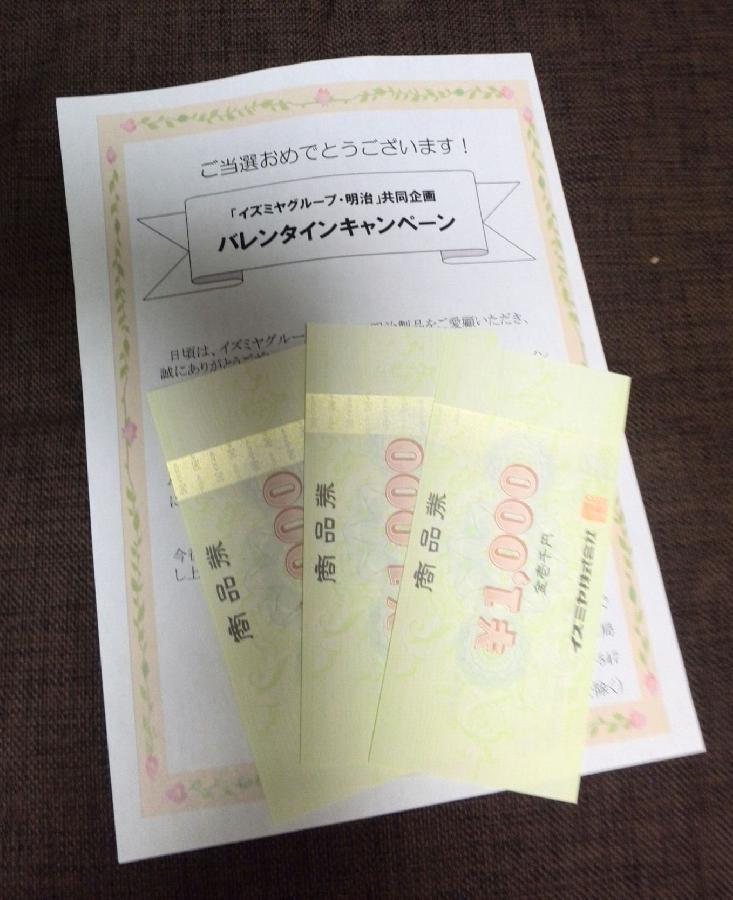 ご当選おめでとうございます！
「イズミヤグループ・明治」共同企画
バレンタインキャンペーン
日頃は、イズミヤグルー
明治製品をご愛顧いただき、
誠にありがとうござ
し上
商品券
000
商品券
¥1,000
商品券
¥1,000
金壱千円
イズミヤ株式会社